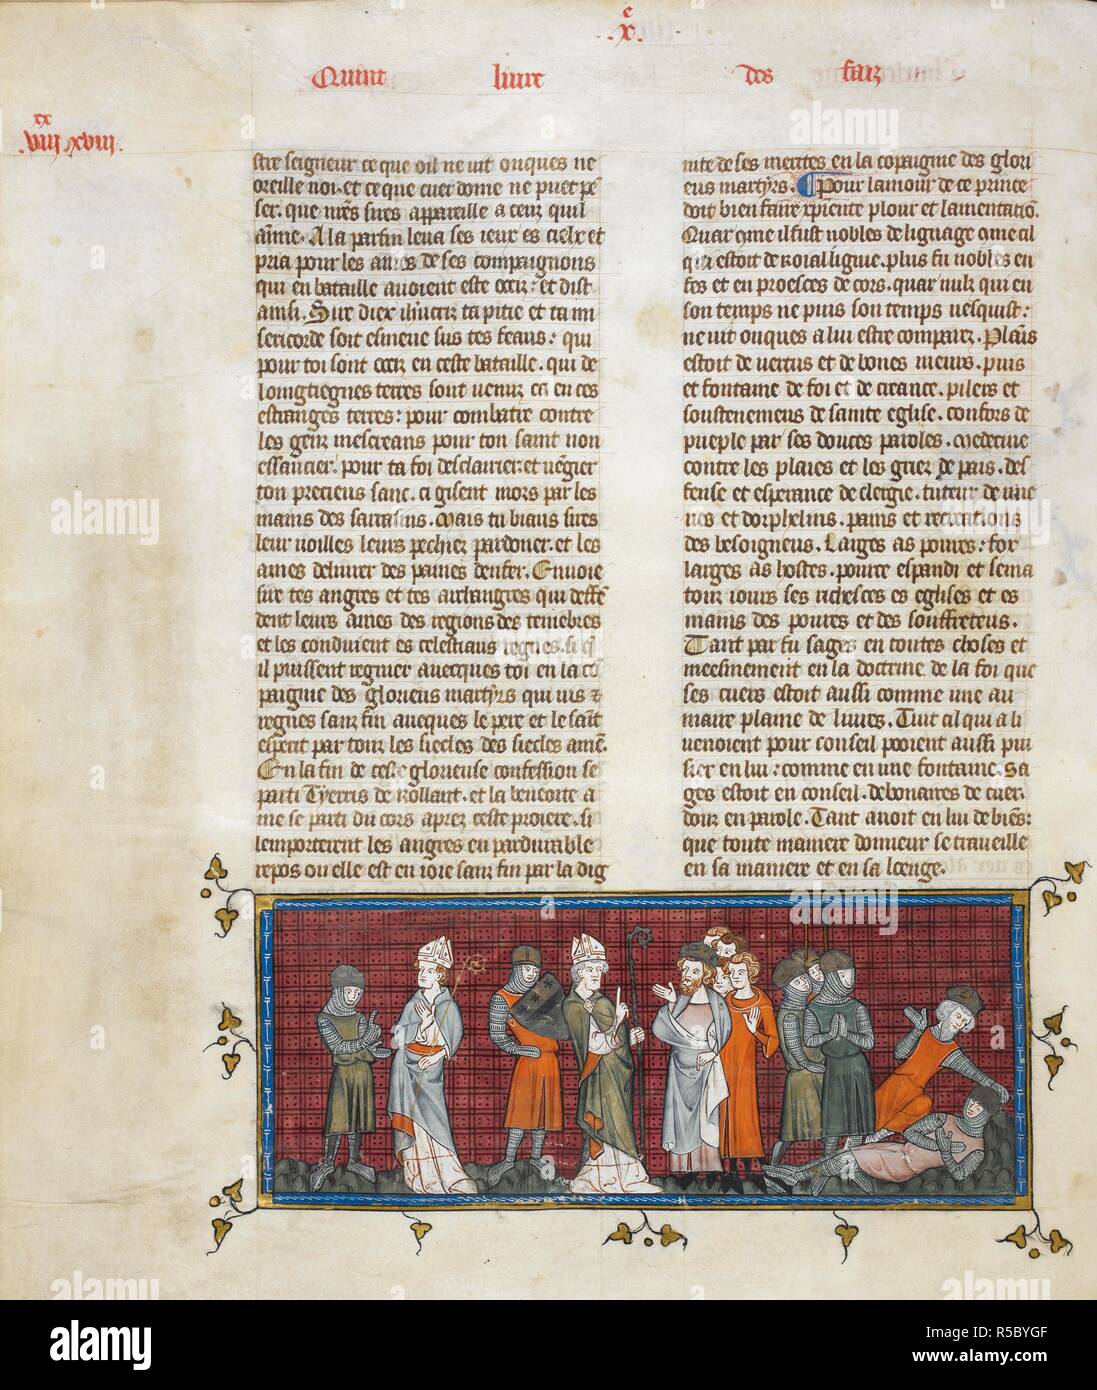 c
.x.
Quint livre des faiz
xx
.viii. xviii.
stre seigneur ce que oil ne vit onques ne
oreille noi. et ce que cuer dome ne puet pē
ser. que nr̄es sires appareille a ceuz quil
aīme. A la parfin leva ses ieux es cielx et
pria pour les ames de ses compaignons
qui en bataille avoient este occiz: et dist
ainsi. Sire diex ta pitie et ta mi
sericorde soit esmeue sus tes feaus: qui
pour toi sont occiz en ceste bataille. qui de
loingtiegnes terres sont venuz ca en ces
estranges terres: pour combatre contre
les genz mescreans pour ton saint non
essaucier. pour ta foi desclairier. et vēgier
ton precieus sanc. ci gisent mors par les
mains des sarrasins. Mais tu biaus sires
leur voilles leurs pechiez pardoner. et les
ames delivrer des paines denfer. Envoie
sire tes angres et tes archangres qui deffē
dent leurs ames des regions des teniebres
et les conduient es celestiaus regnes. si q̄
il puissent regnier avecques toi en la cō
paignie des glorieus martyrs qui vis ⁊
regnes sanz fin aveques le pere et le saīt
esperit par touz les siecles des siecles amē.
En la fin de ceste glorieuse confession se
parti Tyerris de Rollant. et la benoite a
me se parti du cors aprez ceste proiere. si
lemporterent les angres en pardurable
repos ou elle est en ioie sanz fin par la dig
nite de ses merites en la cōpaignie des glori
eus martyrs. ¶ Pour lamour de ce prince
doit bien faire xp̄iente plour et lamentatiō.
Quar cōme il fust nobles de lignage cōme cil
qui estoit de roial ligniee. plus fu nobles en
fes et en proesces de cors. quar nulz qui en
son temps ne puis son temps vesquist:
ne vit onques a lui estre comparez. Plains
estoit de vertus et de bones meurs. puis
et fontaine de foi et de creance. pilers et
soustenemens de sainte eglise. confors de
pueple par ses douces paroles. Medecine
contre les plaies et les griez de pais. des
fense et esperance de clergie. tuteur de veu
ves et dorphelins. pains et recreations
des besoigneus. Larges as povres: for
larges as hostes. pource espandi et sema
touz iours ses richesces es eglises et es
mains des povres et des souffreteus.
Tant par fu sages en toutes choses et
meesmement en la doctrine de la foi que
ses cuers estoit aussi comme une au
maire plaine de livres. Tuit cil qui a li
venoient pour conseil pooient aussi pui
sier en lui: comme en une fontaine. Sa
ges estoit en conseil. debonaires de cuer.
douz en parole. Tant avoit en lui de biēs:
que toute maniere donneur se traveille
en sa maniere et en sa loenge.
alamy
alamy
Image ID: R5BYGF
www.alamy.com